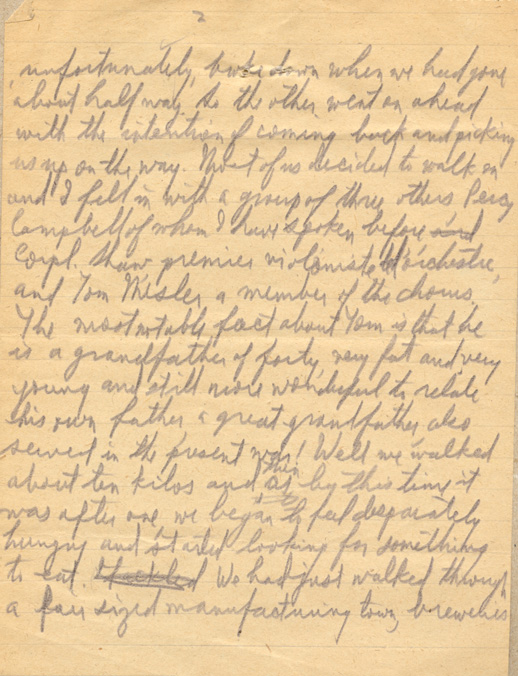 2
unfortunately, broke down when we had gone
about half way so the other went on ahead
with the intention of coming back and picking
us up on the way. Most of us decided to walk on
and I fell in with a group of three others Percy
Campbell of whom I have spoken before
Corpl. Shaw premier violinist orchestre,
and Tom Mesler a member of the chorus.
The most notable fact about Tom is that he
is a grandfather of forty, very fat and very
young and still more wonderful to relate
his own father a great grandfather also
served in the present war! Well we walked
about ten kilos and then as by this time it
was after one, we began to feel desparately
hungry and started looking for something
to eat. We had just walked through
a fair sized manufacturing town, breweries